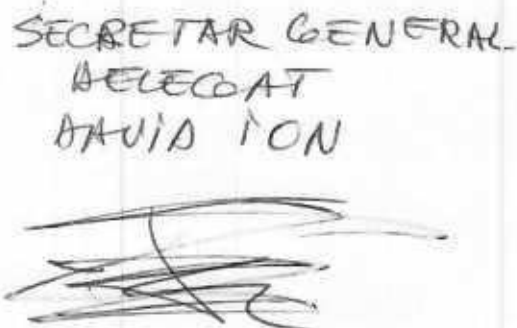 SECRETAR GENERAL
DELEGAT
DAVID ION